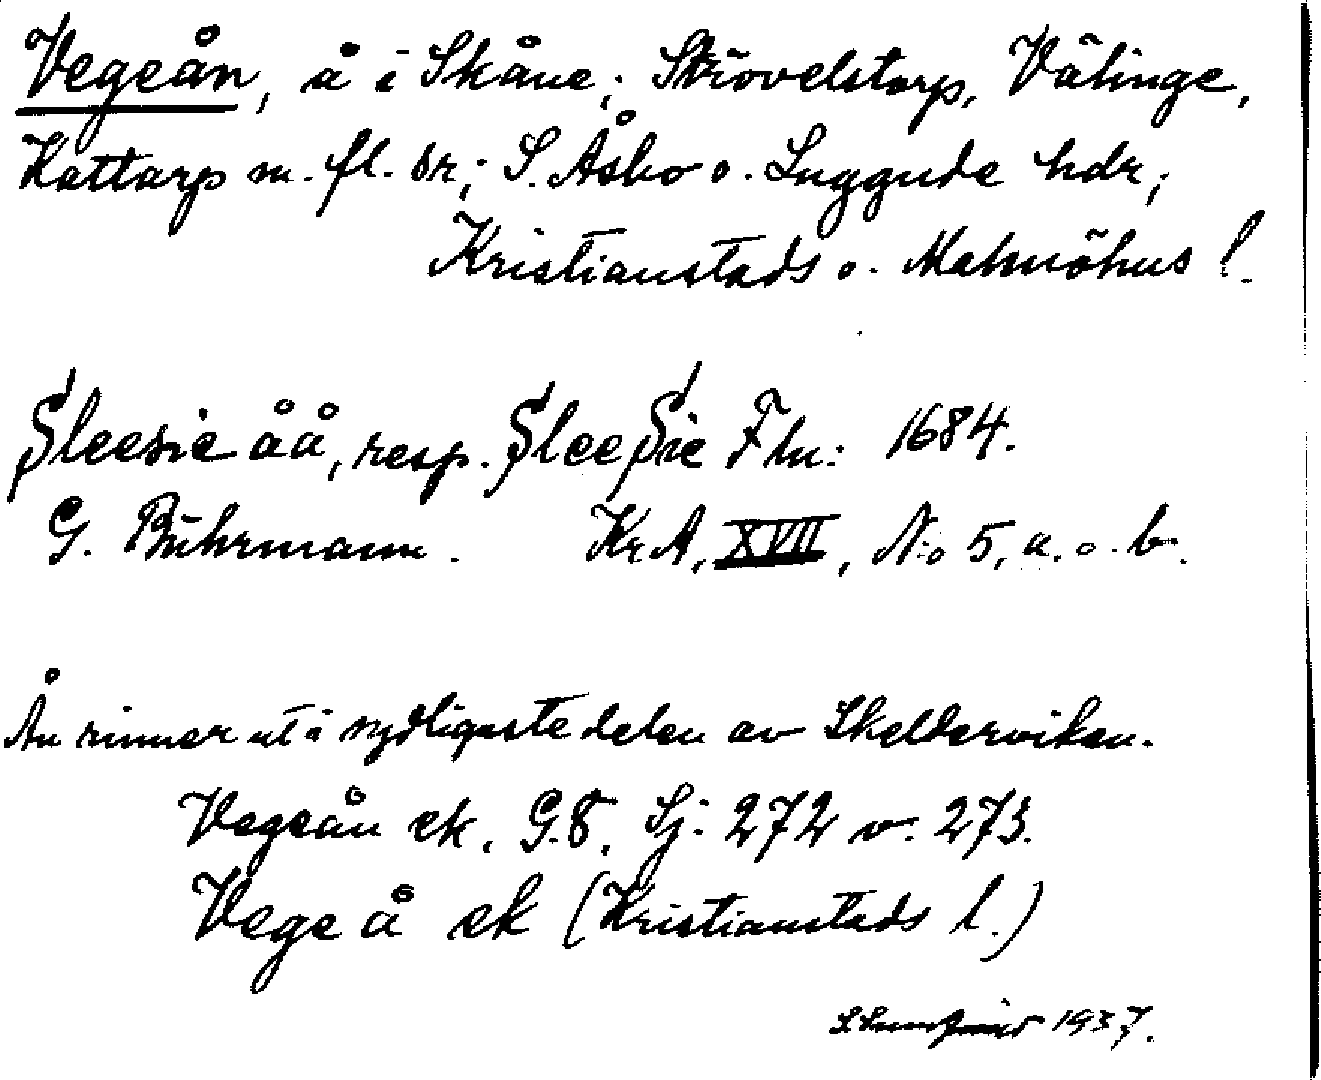 Vegeån, å i Skåne; Strövelstorp, Välinge,
Kattarp m. fl. sr; S. Åsbo o. Luggude hdr;
Kristianstads o. Malmöhus l.
Sleesie åå, resp. SleeSie Flu: 1684.
G. Buhrmann. KrA, XVII, N:o 5, a. o. b.
Ån rinner ut i sydligaste delen av Skelderviken.
Vegeån ek. G.S. Sj: 272 v. 273.
Vege å ek (Kristianstads l.)
1937.